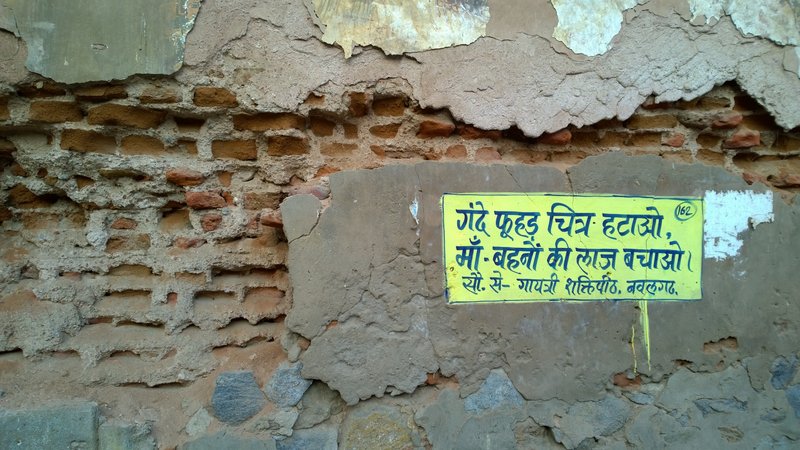 गंदे फूहड़ चित्र हटाओ, 162
माँ-बहनों की लाज बचाओ।
सौ. से- गायत्री शक्तिपीठ, नवलगढ.